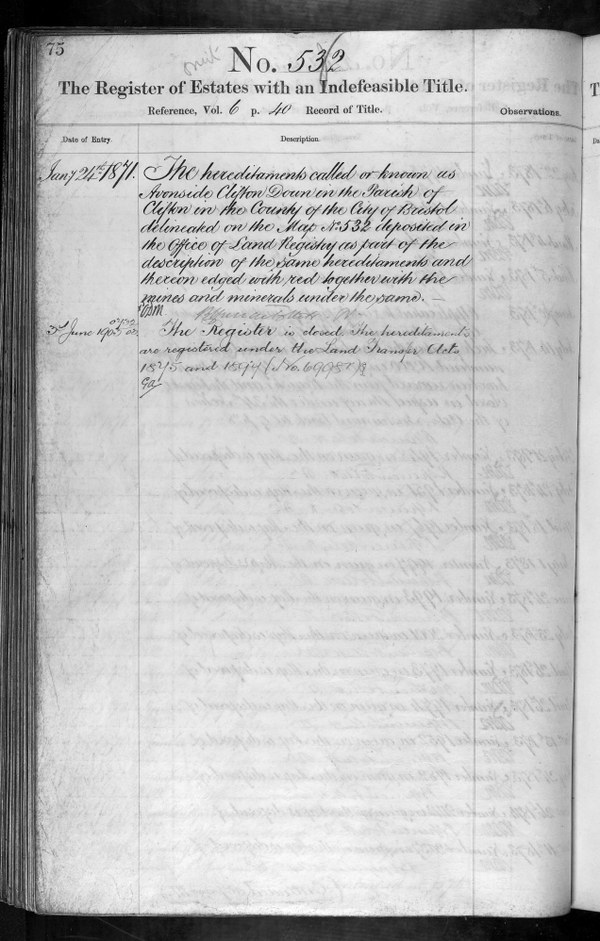 75
No. 532
The Register of Estates with an Indefeasible Title.
Reference, Vol. 6 p. 40 Record of Title.
Observations.
Date of Entry.
Description.
Jany 24th 1871. The hereditaments called or known as
Avonside Clifton Down in the Parish of
Clifton in the County of the City of Bristol
delineated on the Map No. 532 deposited in
the Office of Land Registry as part of the
description of the same hereditaments and
thereon edged with red together with the
mines and minerals under the same. —
3d June 1903 The Register is closed. The hereditaments
are registered under the Land Transfer Acts
1875 and 1897 (No.